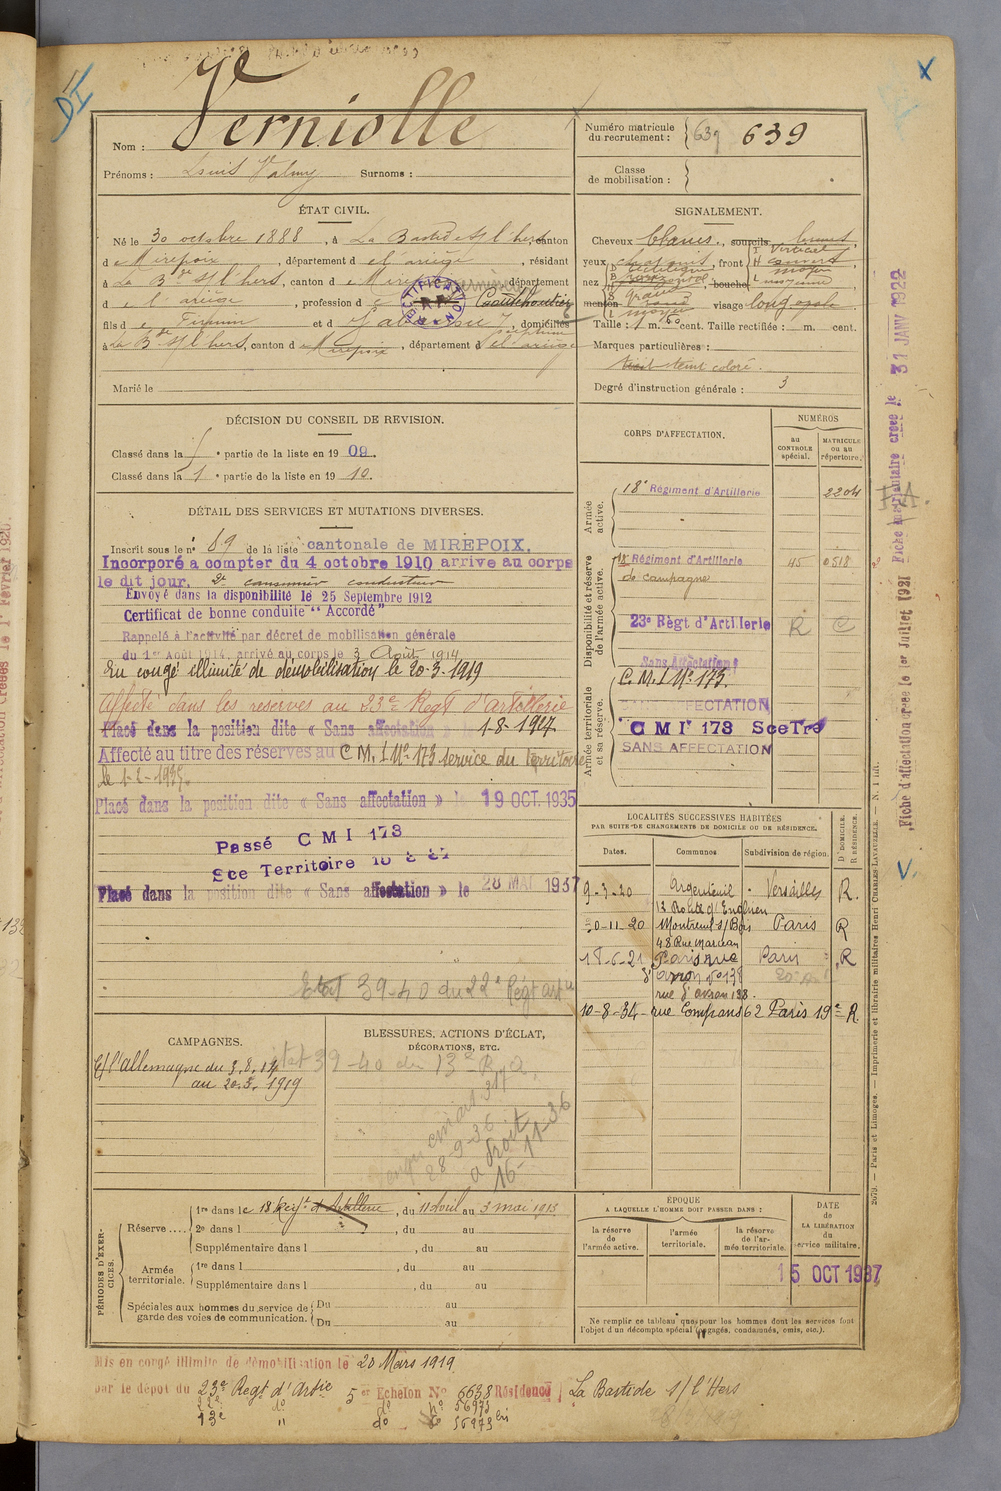 Verniolle
Nom :
Prénoms : Louis Valmy Surnoms :
Numéro matricule du recrutement : 639 639
Classe de mobilisation :
ÉTAT CIVIL.
Né le 30 octobre 1888, à La Bastide s/ l'hers canton
d e Mirepoix, département d e l'ariège, résidant
à La B.de s/ l'hers, canton d e Mirepoix, département
d e l'ariège, profession d Caoutchoutier
fils d e Firmin et d, domiciliés
à La B.de s/ l'hers, canton d e Mirepoix, département d e l'ariège
Marié le
RECTIFICATION
SIGNALEMENT.
Cheveux blancs, sourcils bruns,
yeux, front
nez, bouche moyenne,
menton visage long ovale
Taille : 1 m. 60 cent. Taille rectifiée : m. cent.
Marques particulières :
teint coloré.
Degré d'instruction générale : 3
DÉCISION DU CONSEIL DE REVISION.
Classé dans la 5e partie de la liste en 1909.
Classé dans la 1e partie de la liste en 1910.
DÉTAIL DES SERVICES ET MUTATIONS DIVERSES.
Inscrit sous le n° 69 de la liste cantonale de MIREPOIX.
Incorporé a compter du 4 octobre 1910 arrive au corps
le dit jour. 2e canonnier conducteur
Envoyé dans la disponibilité le 25 Septembre 1912
Certificat de bonne conduite "Accordé"
Rappelé à l'activité par décret de mobilisation générale
du 1er Août 1914. arrivé au corps le 3 Août 1914
En congé illimité de démobilisation le 20-3-1919
Affecté dans les reserves au 23e Regt d'artillerie
Placé dans la position dite « Sans affectation » le 1-8-1927
Affecté au titre des réserves au C.M.I N° 173 service du territoire
Placé dans la position dite « Sans affectation » le 19 OCT. 1935
Passé C M I 173
Sce Territoire
Placé dans la position dite « Sans affectation » le 28 MAI 1937
Etat 39-40 du 22e Régt art
CORPS D'AFFECTATION.
NUMÉROS
au CONTROLE spécial.
MATRICULE ou au répertoire.
Armée active.
18e Régiment d'Artillerie 2204
Disponibilité et réserve de l'armée active.
18e Régiment d'Artillerie 45 0518
de campagne
23e Régt d'Artillerie R C
Sans Affectation
Armée territoriale et sa réserve.
C.M.I N° 173.
SANS AFFECTATION
CMI 173 SceTre
SANS AFFECTATION
LOCALITÉS SUCCESSIVES HABITÉES
PAR SUITE DE CHANGEMENTS DE DOMICILE OU DE RÉSIDENCE.
Dates. Communes Subdivision de région. D. DOMICILE. R. RÉSIDENCE.
9-3-20 Argenteuil - Versailles R.
12 Route d'Enghien
20-11-20 Montreuil s/ Bois Paris R
48 Rue Marceau
18-6-21 Paris rue Paris R
d'avron n° 138
rue d'avron 138.
10-8-34 - rue Compans 62 Paris 19e - R.
CAMPAGNES.
C/ l'allemagne du 3.8.14
au 20.3.1919
BLESSURES, ACTIONS D'ÉCLAT,
DÉCORATIONS, ETC.
Etat 39-40 du 13e R.A.
28-9-36
a droit
16-11-36
PÉRIODES D'EXERCICES.
Réserve....
1re dans le 18 Regt d'Artillerie, du 11 Avril au 3 mai 1913
2e dans l, du au
Supplémentaire dans l, du au
Armée territoriale.
1re dans l, du au
Supplémentaire dans l, du au
Spéciales aux hommes du service de garde des voies de communication.
Du au
Du au
ÉPOQUE
A LAQUELLE L'HOMME DOIT PASSER DANS :
la réserve de l'armée active.
l'armée territoriale.
la réserve de l'armée territoriale.
DATE de LA LIBÉRATION du service militaire.
15 OCT 1937
Ne remplir ce tableau que pour les hommes dont les services font
l'objet d'un décompte spécial (engagés, condamnés, omis, etc.).
Mis en congé illimité de démobilisation le 20 Mars 1919
par le dépot du 23e Regt d'Artie 5er Echelon N° 6638 Résidence La Bastide s/ l'Hers
22e d° d° n° 56973
13e " d° 56973 bis
Fiche d'affectation créée le 1er Juillet 1921
31 JANV 1922
2079. — Paris et Limoges. — Imprimerie et librairie militaires Henri CHARLES-LAVAUZELLE.